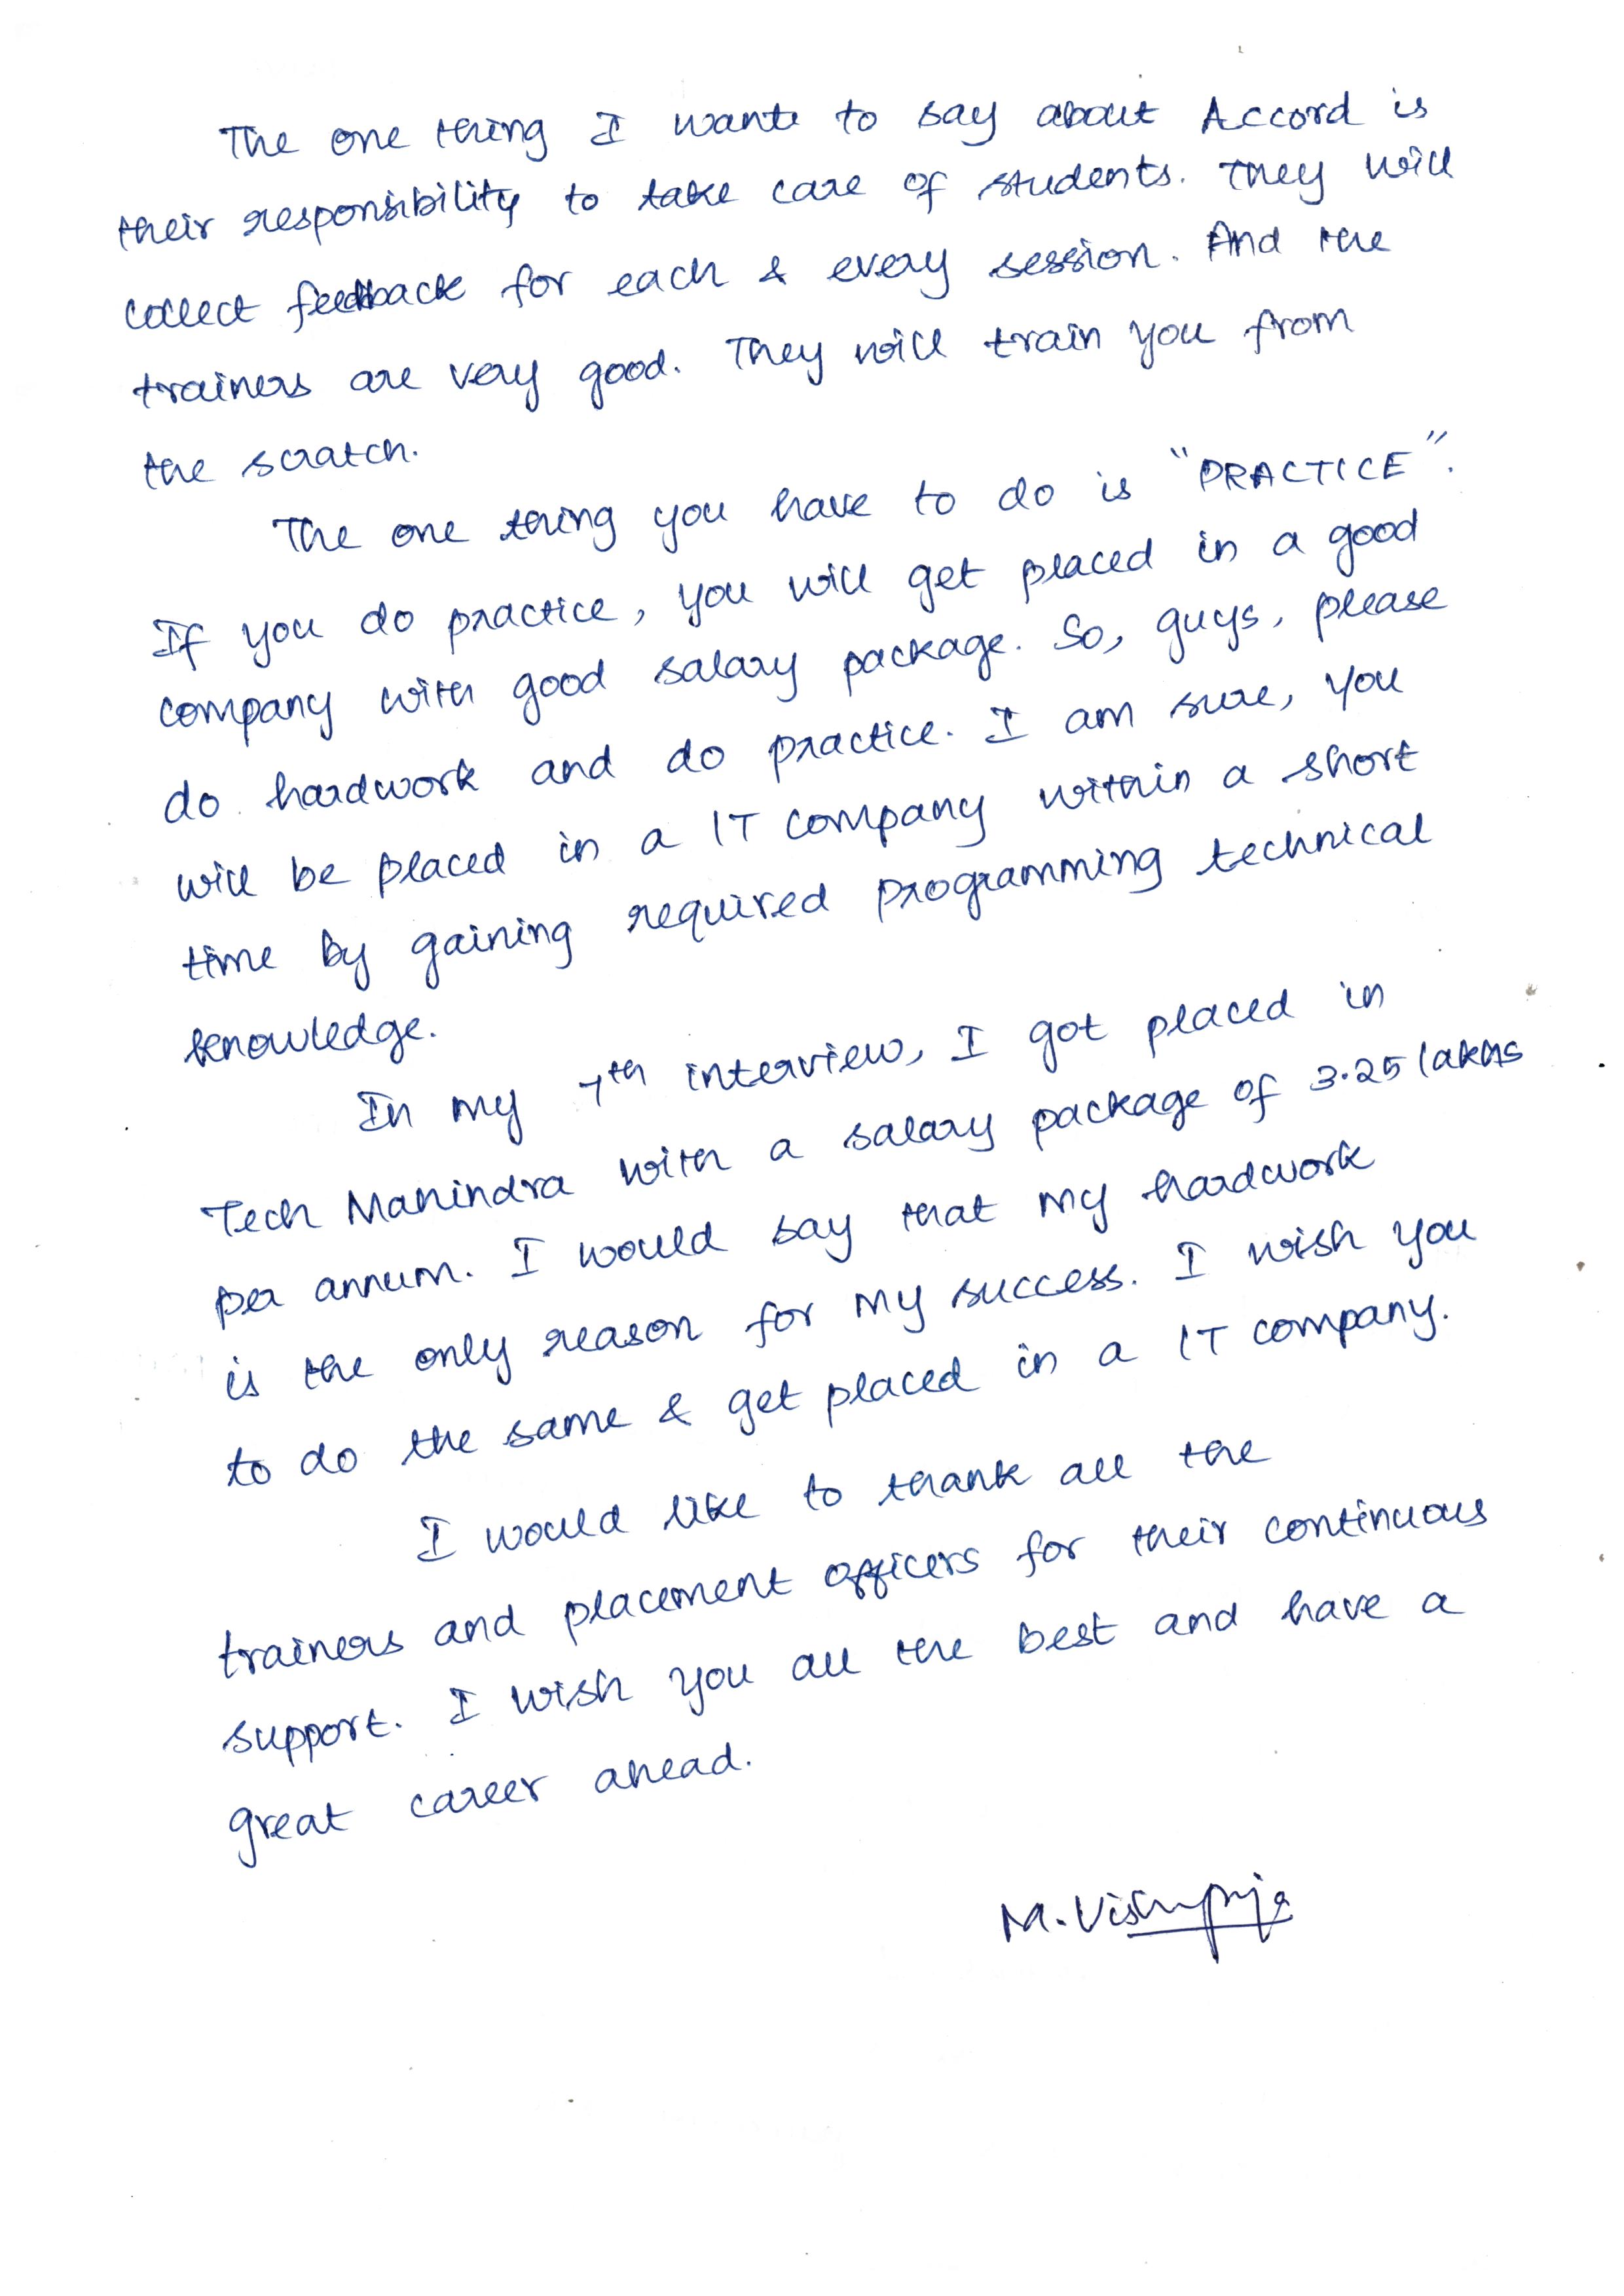 The one thing I want to say about Accord is
their responsibility to take care of students. They will
collect feedback for each & every session. And the
trainers are very good. They will train you from
the scratch.
The one thing you have to do is "PRACTICE".
If you do practice, you will get placed in a good
company with good salary package. So, guys, please
do hardwork and do practice. I am sure, you
will be placed in a IT company within a short
time by gaining required programming technical
knowledge.
In my 7th interview, I got placed in
Tech Mahindra with a salary package of 3.25 lakhs
per annum. I would say that my hardwork
is the only reason for my success. I wish you
to do the same & get placed in a IT company.
I would like to thank all the
trainers and placement officers for their continuous
support. I wish you all the best and have a
great career ahead.
M.